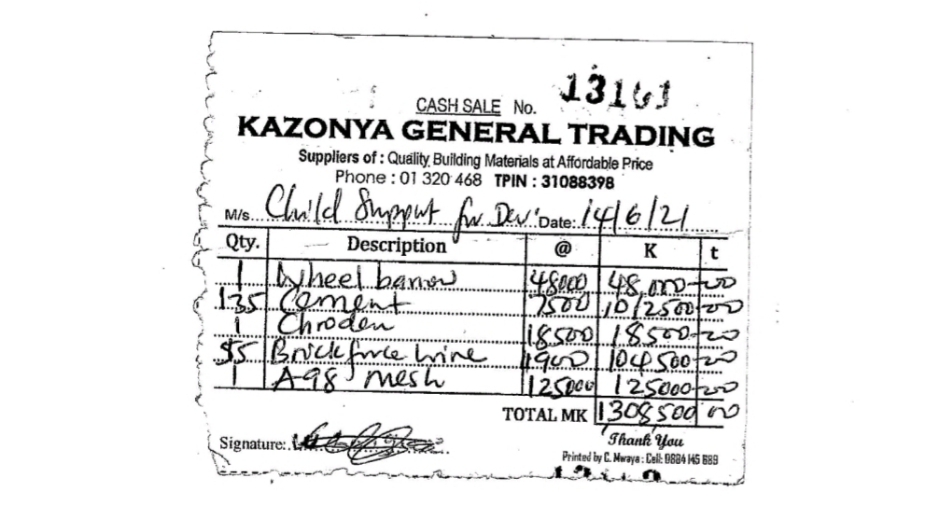 CASH SALE No. 13161
KAZONYA GENERAL TRADING
Suppliers of : Quality, Building Materials at Affordable Price
Phone : 01 320 468 TPIN : 31088398
M/s... Child Support for Dev: Date: 14/6/21
Qty. Description @ K t
1 Wheel barrow 48000 48,000 00
135 Cement 7500 1012500 00
1 Chroden 18500 18500 00
55 Brick force wire 1900 104500 00
1 A-98 mesh 125000 125000 00
TOTAL MK 1308500 00
Thank You
Signature:
Printed by C. Mwaya : Cell: 0884 145 689